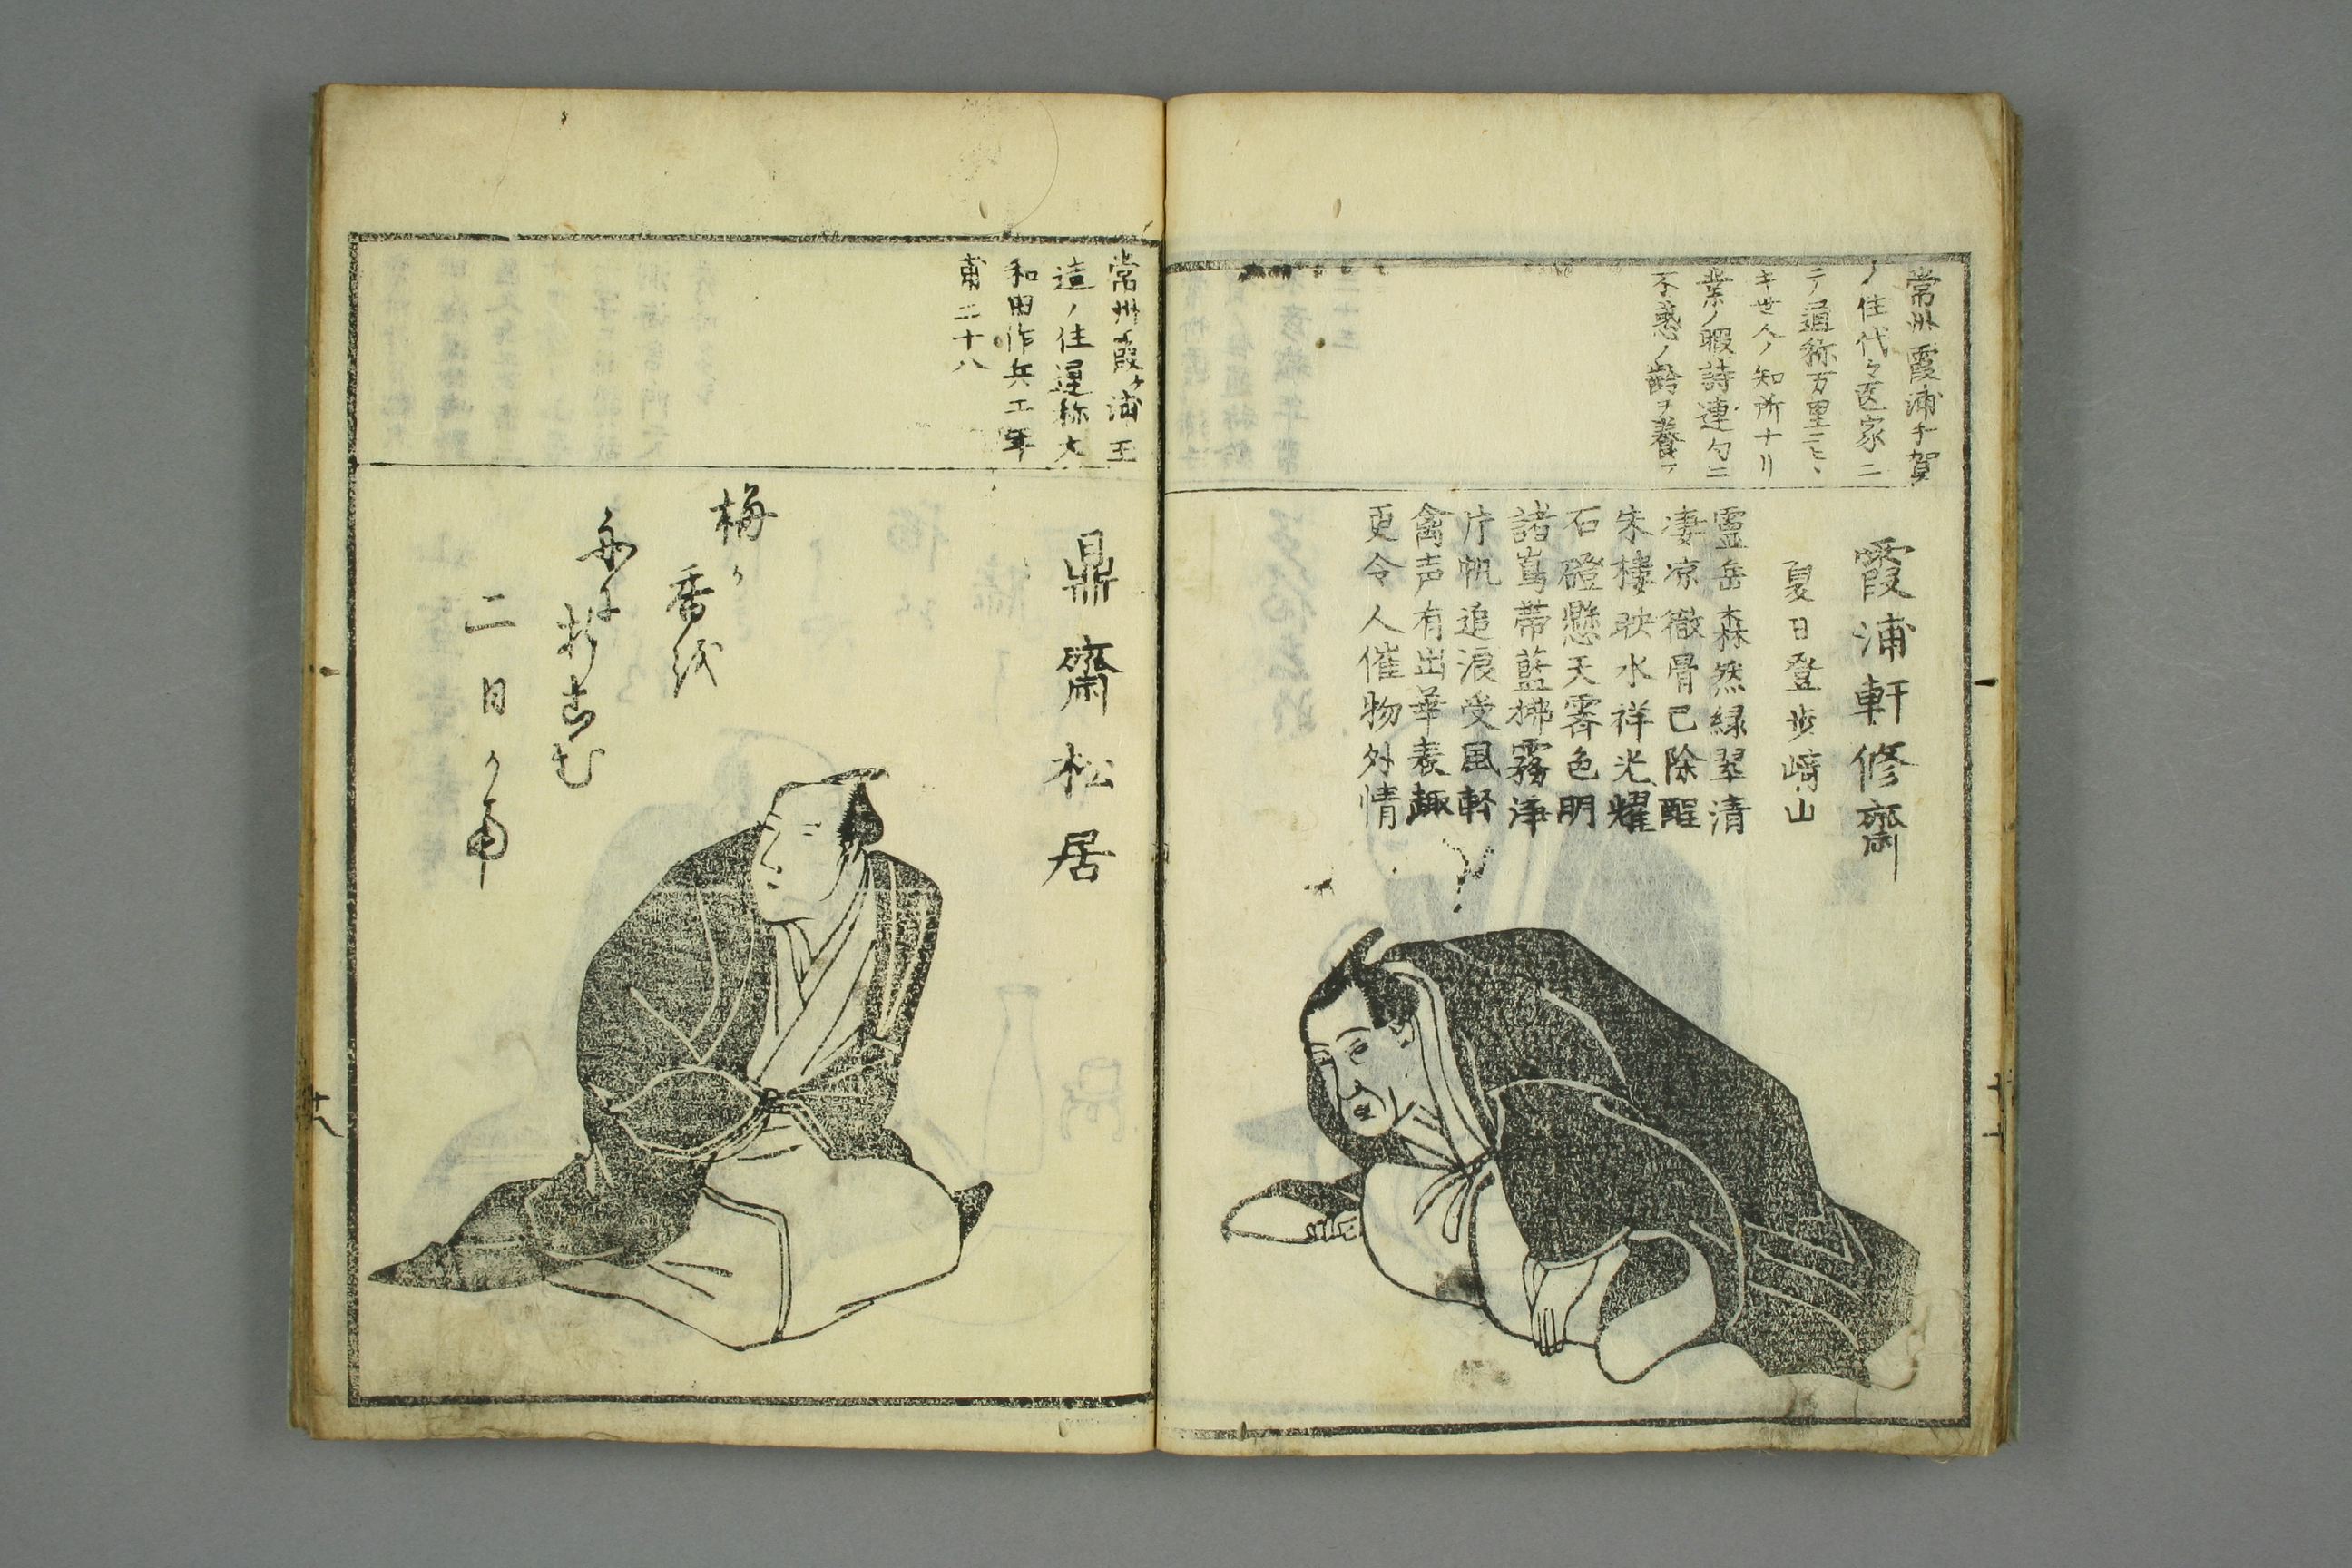 常州霞浦牛賀
ノ住代々医家ニ
ノ通称万里
キ世人ノ知所ナリ
業ノ暇詩連句ニ
不惑ノ齢ヲ養フ
霞浦軒修齋
夏日登歩﨑山
霊岳森然緑翠清
凄凉徹骨已除酲
朱楼映水祥光耀
石磴懸天霽色明
諸蔦帯藍拂霧浄
片帆追浪受風軽
禽声有出華表趣
更令人催物外情
常州霞ヶ浦玉
造ノ住通称大
和田作兵エ年
甫二十八
鼎齋松居
梅か
香or
舟に積こむ
二日か
十八